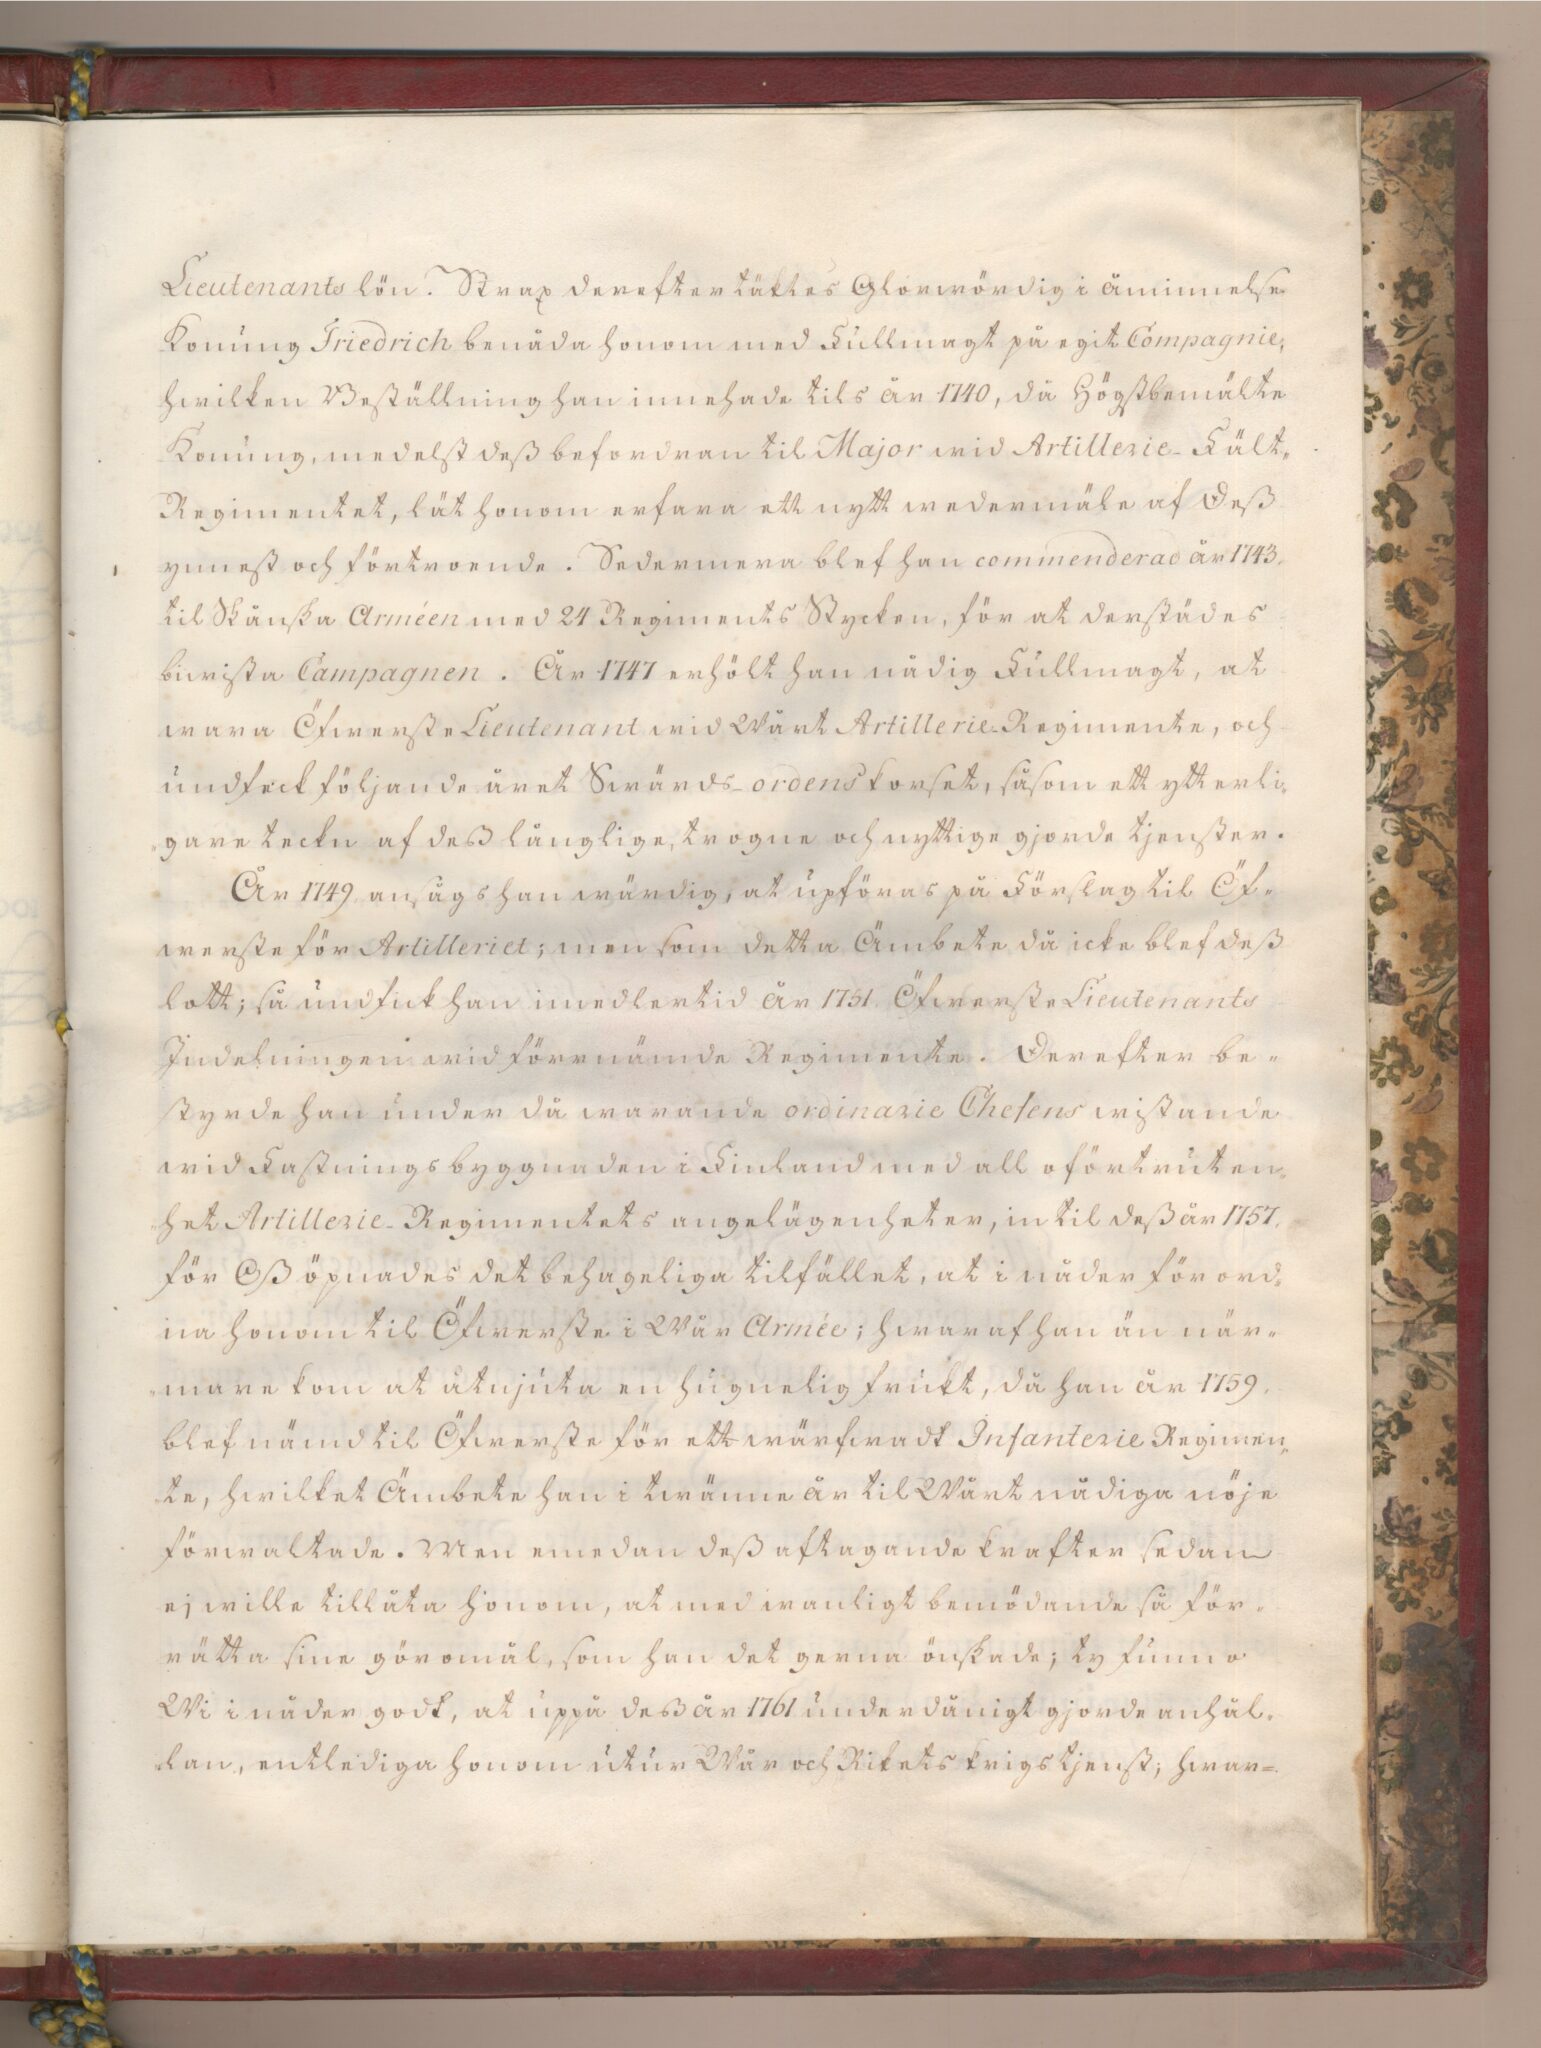 Lieutenants lön. Strax derefter täktes Glorwördig i åminnelse
Konung Friedrich benåda honom med Fullmagt på egit Compagnie,
hwilken Beställning han innehade tils år 1740, då Högstbemälte
Konung, medelst deß befordran til Major wid Artillerie-Fält-
Regimentet, lät honom erfara ett nytt wedermäle af Deß
ynnest och förtroende. Sedermera blef han commenderad år 1743.
til Skånska Arméen med 24 Regiments Stycken, för at derstädes
biwista Campagnen. År 1747 erhölt han nådig Fullmagt, at
wara Öfwerste Lieutenant wid Wårt Artillerie-Regimente, och
undfeck följande året Swärds-ordens korset, såsom ett ytterli-
gare teckn af deß långlige, trogne och nyttige gjorde tjenster.
År 1749. ansågs han wärdig, at upföras på Förslag til Öf-
werste för Artilleriet; men som detta Ämbete då icke blef deß
lott; så undfick han imedlertid år 1751. Öfwerste Lieutenants
Indelningen wid förrnämde Regimente. Derefter be-
styrde han under då warande ordinarie Chefens wistande
wid Fästningsbyggnaden i Finland med all oförtruten-
het Artillerie-Regimentets angelägenheter, in til deß år 1757.
för Oß öpnades det behageliga tilfället, at i nåder förord-
na honom til Öfwerste i Wår Armée; hwaraf han än när-
mare kom at åtnjuta en hugnelig frukt, då han år 1759.
blef nämd til Öfwerste för ett wärfwadt Infanterie Regimen-
te, hwilket Ämbete han i twänne år til Wårt nådiga nöje
förwaltade. Men emedan deß aftagande krafter sedan
ej wille tillåta honom, at med wanligt bemödande så för-
rätta sine göromål, som han det gerna önskade; ty funno
Wi i nåder godt, at uppå deß år 1761 underdånigt gjorde anhål-
lan, entlediga honom utur Wår och Rikets krigstjenst; hwar=